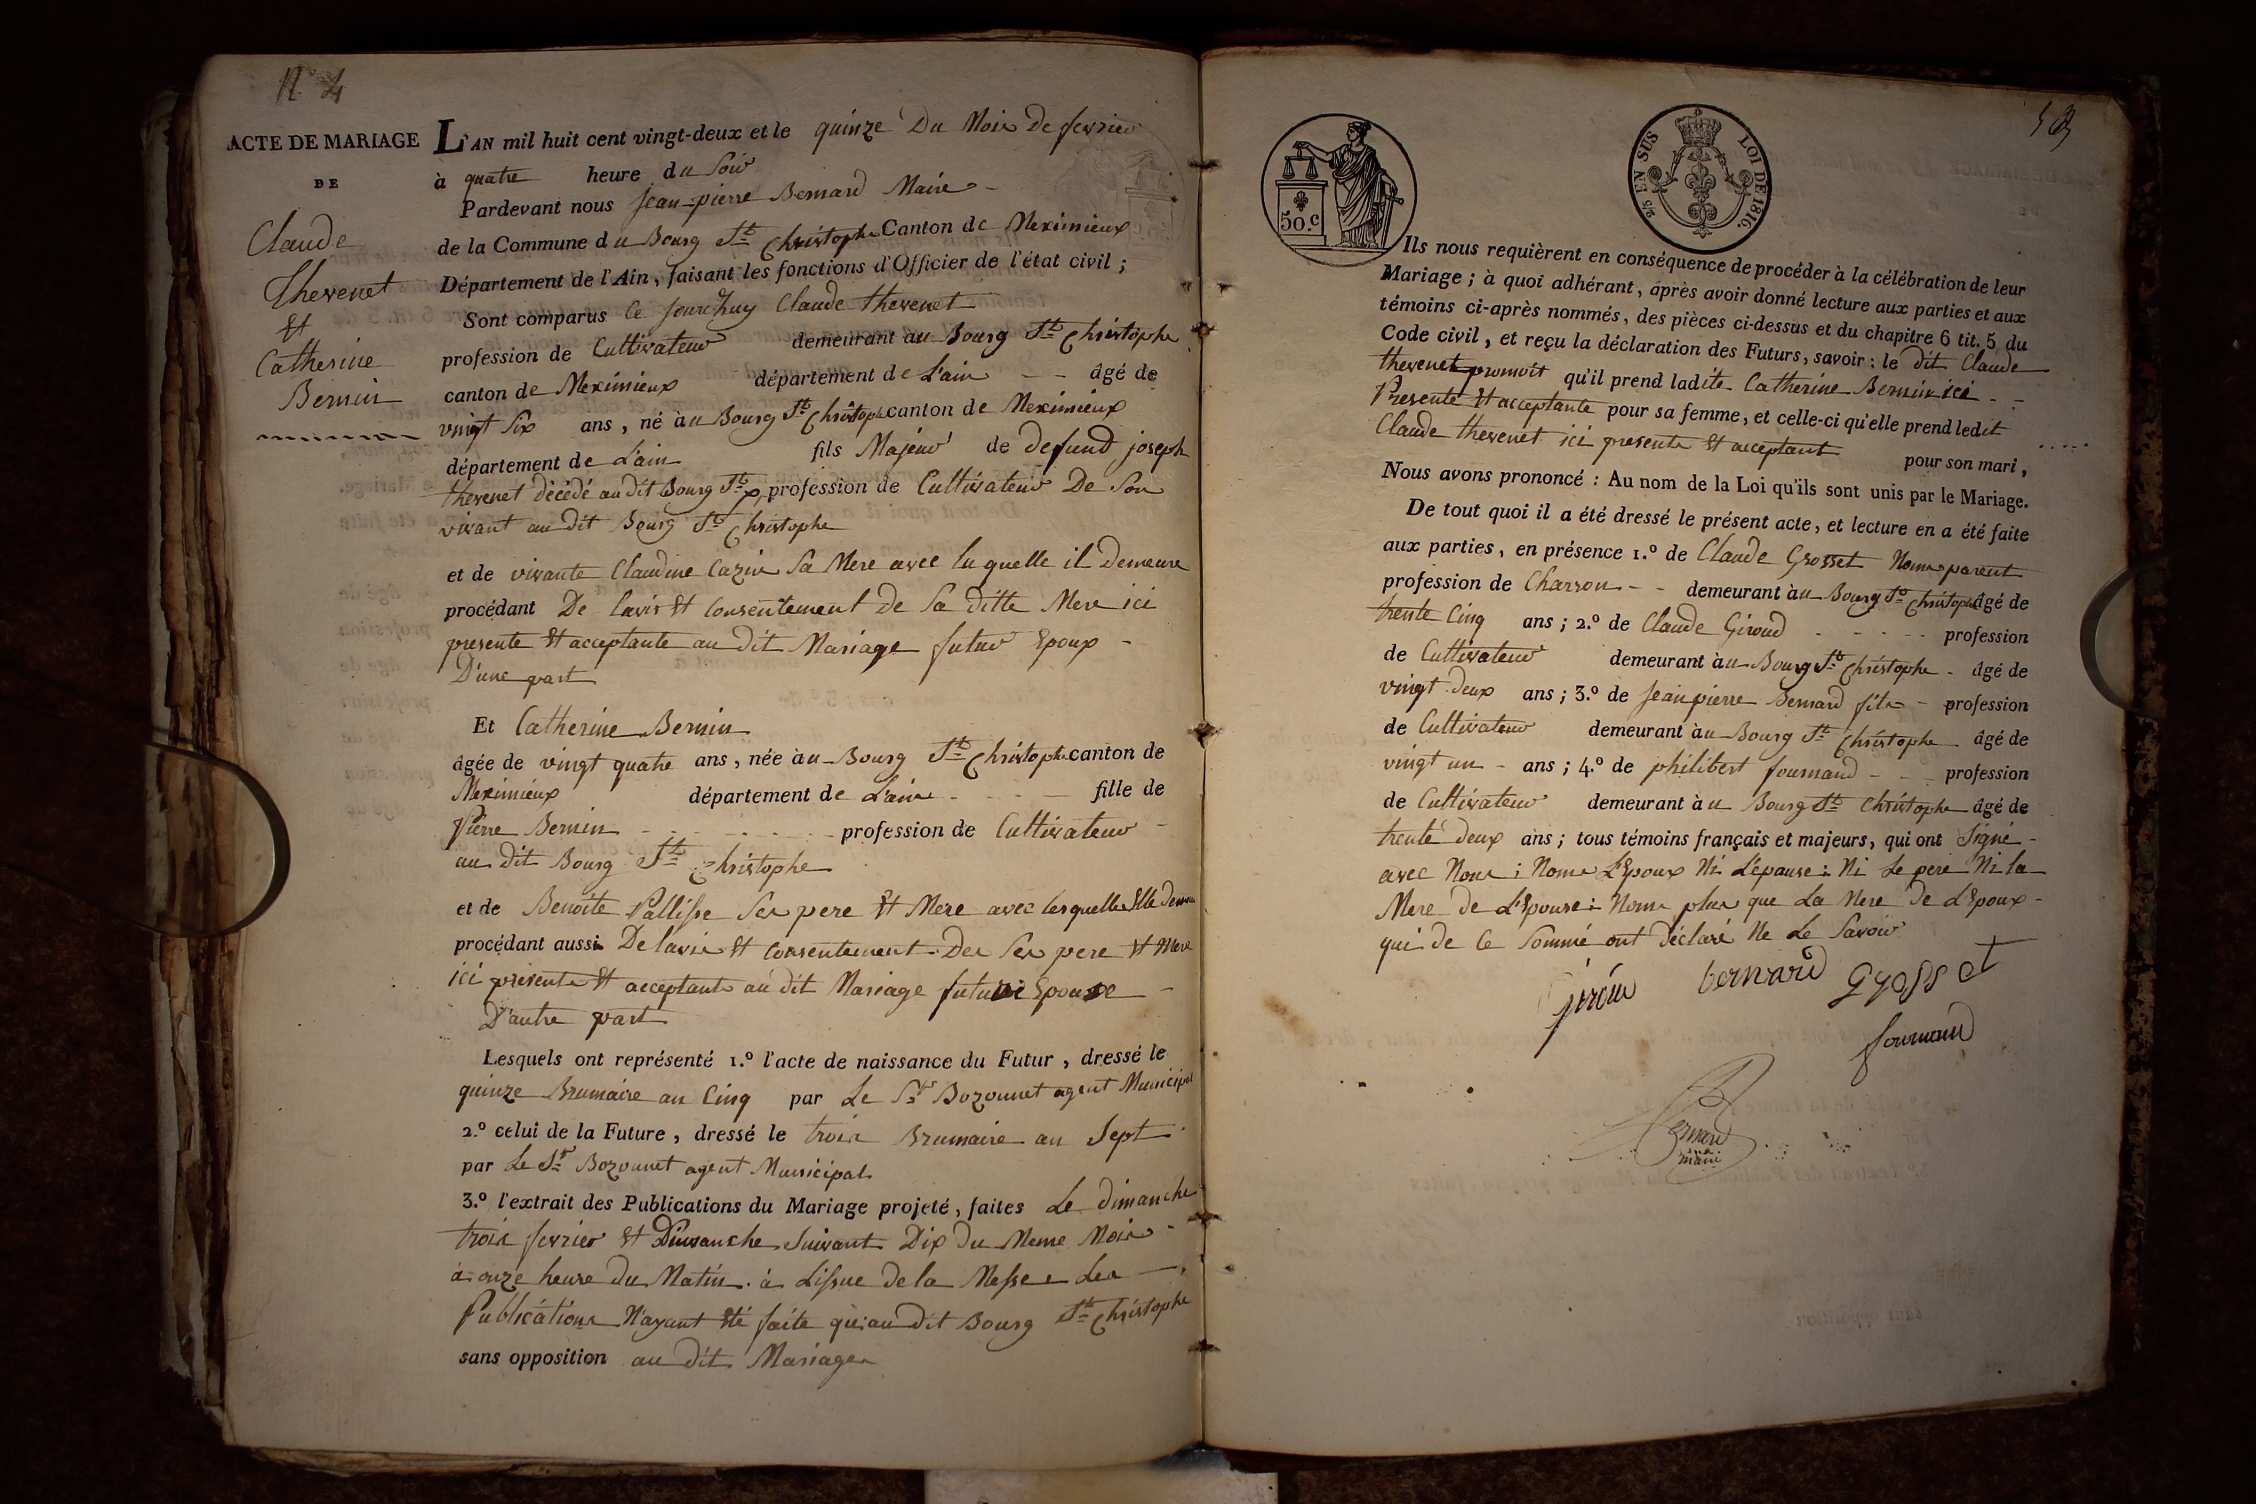 N° 4
ACTE DE MARIAGE
DE
Claude
Thevenet
Et
Catherine
Bernin
L'AN mil huit cent vingt-deux et le quinze Du Mois De fevrier
à quatre heure du Soir
Pardevant nous Jean-pierre Bernard Maire
de la Commune du Bourg St Christophe Canton de Meximieux
Département de l'Ain, faisant les fonctions d'Officier de l'état civil ;
Sont comparus Ce jourdhuy Claude thevenet
profession de Cultivateur demeurant au Bourg St Christophe
canton de Meximieux département de L'ain âgé de
vingt Six ans, né àu Bourg St Christophe canton de Meximieux
département de L'ain fils Majeur de defund joseph
thevenet décédé au dit Bourg St profession de Cultivateur De Son
vivant au dit Bourg St Christophe
et de vivante Claudine Cazin Sa Mere avec laquelle il Demeure
procédant De lavis Et Consentement De Sa ditte Mere ici
presente Et acceptante au dit Mariage futur Epoux
D'une part
Et Catherine Bernin
âgée de vingt quatre ans, née àu Bourg St Christophe canton de
Meximieux département de L'ain fille de
Pierre Bernin profession de Cultivateur
au dit Bourg St Christophe
et de Benoite Pallisse Ses pere Et Mere avec lesquelle Elle Demeure
procédant aussi De lavis Et Consentement Des Ses pere Et Mere
ici présents Et acceptants au dit Mariage future Epouse
D'autre part
Lesquels ont représenté 1.º l'acte de naissance du Futur, dressé le
quinze Brumaire an Cinq par Le Sr Bozonnet agent Municipal
2.º celui de la Future, dressé le trois Brumaire an Sept
par Le Sr Bozonnet agent Municipal
3.º l'extrait des Publications du Mariage projeté, faites Le dimanche
trois fevrier Et Dimanche Suivant Dix Du Meme Mois
à onze heure Du Matin à Lissue De la Messe Les
Publications N'ayant Eté faite qu'au Dit Bourg St Christophe
sans opposition au dit Mariage
50.c
25/c EN SUS
LOI DE 1816.
Ils nous requièrent en conséquence de procéder à la célébration de leur
Mariage ; à quoi adhérant, après avoir donné lecture aux parties et aux
témoins ci-après nommés, des pièces ci-dessus et du chapitre 6 tit. 5 du
Code civil, et reçu la déclaration des Futurs, savoir : le dit Claude
thevenet qu'il prend ladite Catherine Bernin ici
Presente Et acceptante pour sa femme, et celle-ci qu'elle prend ledit
Claude thevenet ici presente Et acceptant pour son mari,
Nous avons prononcé : Au nom de la Loi qu'ils sont unis par le Mariage.
De tout quoi il a été dressé le présent acte, et lecture en a été faite
aux parties, en présence 1.º de Claude Grosset Nom parent
profession de Charron demeurant àu Bourg St Christophe âgé de
trente Cinq ans ; 2.º de Claude Giroud profession
de Cultivateur demeurant àu Bourg St Christophe âgé de
vingt deux ans ; 3.º de Jean pierre Bernard fils profession
de Cultivateur demeurant àu Bourg St Christophe âgé de
vingt un ans ; 4.º de philibert fournand profession
de Cultivateur demeurant àu Bourg St Christophe âgé de
trente deux ans ; tous témoins français et majeurs, qui ont Signé
avec Nous ; Nom L'Epoux Ni L'épouse : Ni Le pere Ni la
Mere De L'Epouse : Nom plus que La Mere De L'Epoux
qui de Ce Sommé ont Déclaré Ne Le Savoir
bernard Grosset
fournand
Bernard
maire